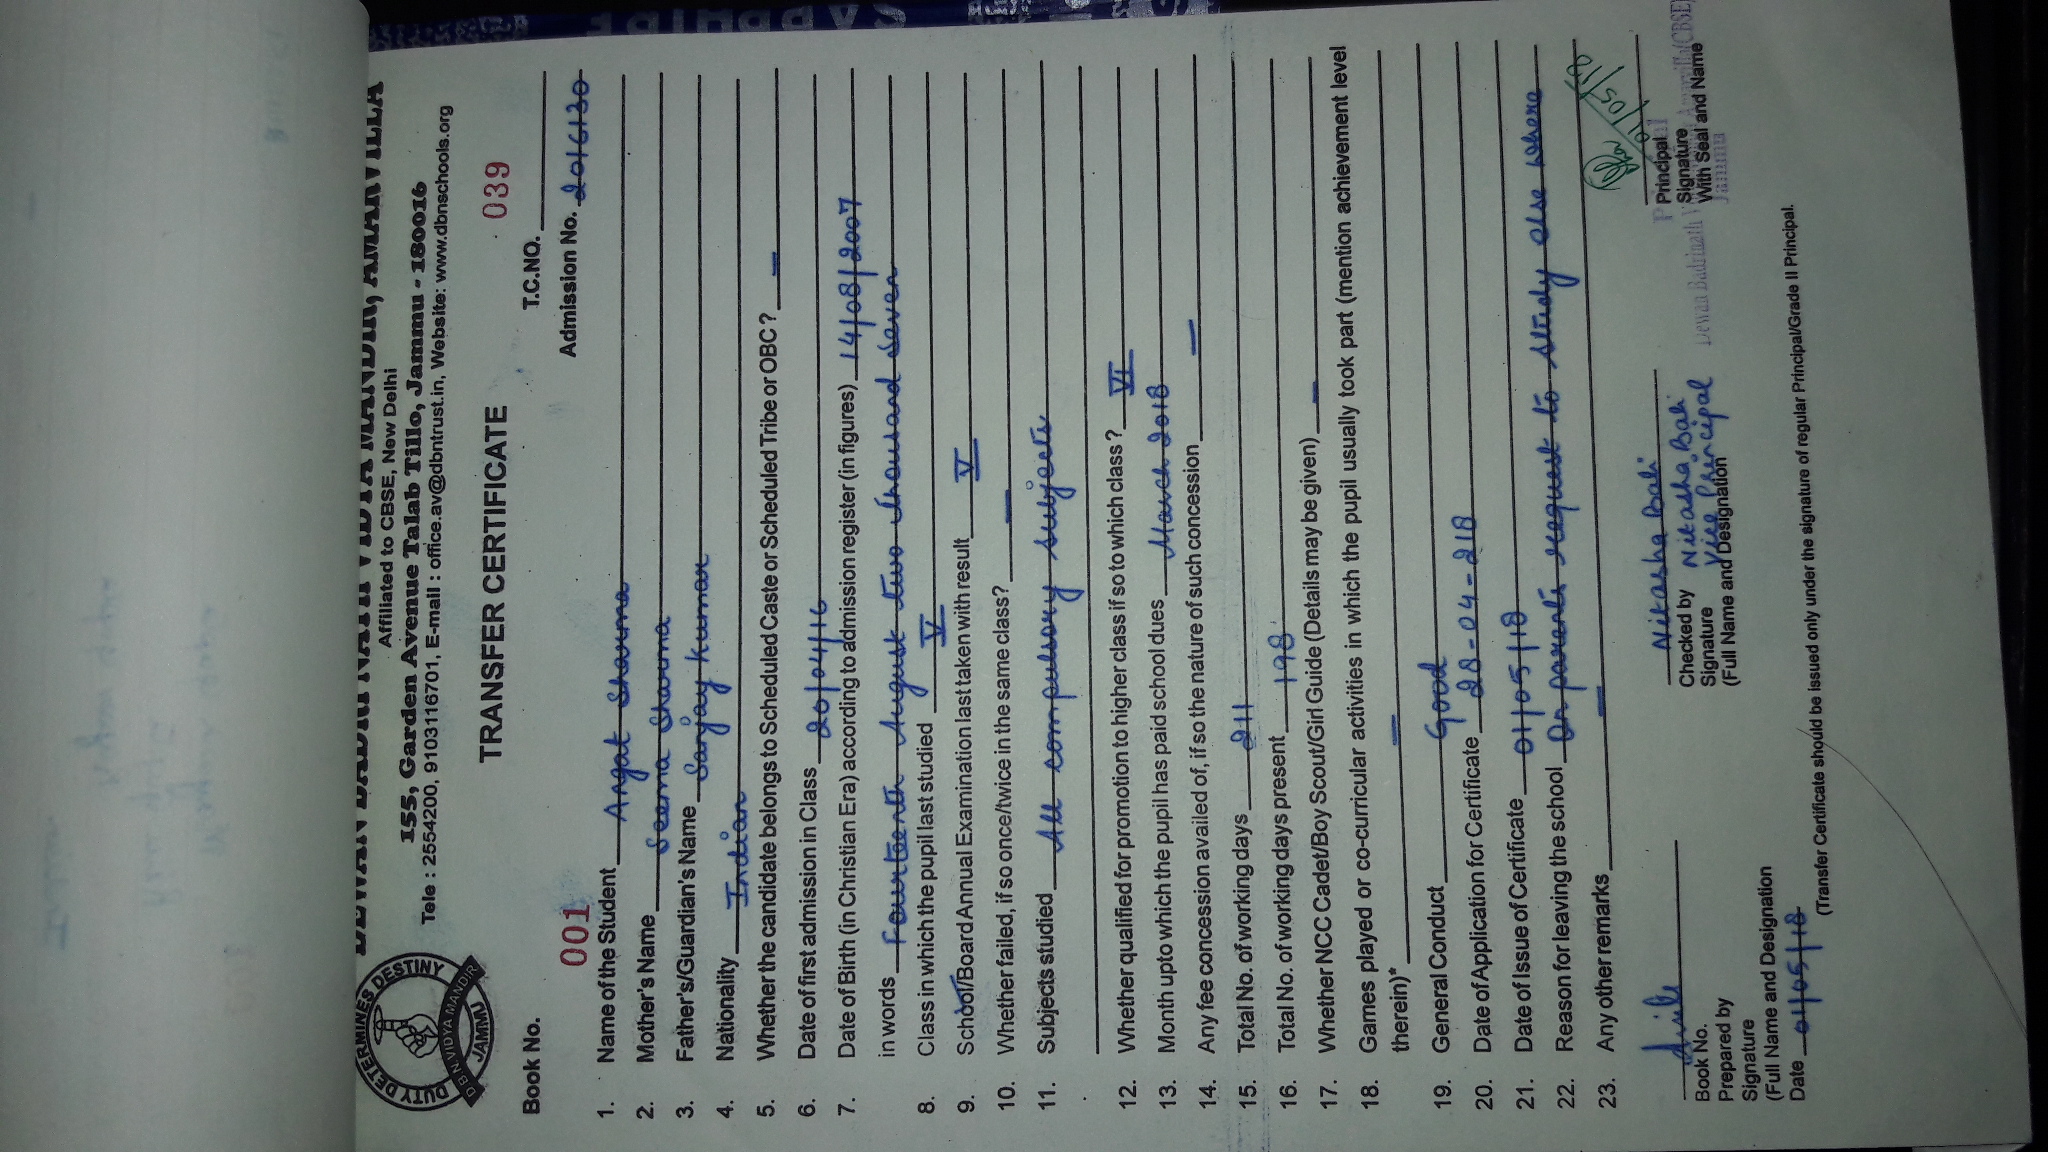 DEWAN BADRI NATH VIDYA MANDIR, AMARVILLA
Affiliated to CBSE, New Delhi
155, Garden Avenue Talab Tillo, Jammu - 180016
Tele : 2554200, 9103116701, E-mail : office.av@dbntrust.in, Website: www.dbnschools.org
DUTY DETERMINES DESTINY
DBN VIDYA MANDIR
JAMMU
TRANSFER CERTIFICATE
039
Book No. 001 T.C.NO.
Admission No. 2016130
1. Name of the Student Angat Sharma
2. Mother's Name Seema Sharma
3. Father's/Guardian's Name Sanjay Kumar
4. Nationality Indian
5. Whether the candidate belongs to Scheduled Caste or Scheduled Tribe or OBC? —
6. Date of first admission in Class 20/04/16
7. Date of Birth (in Christian Era) according to admission register (in figures) 14/08/2007
in words Fourteenth August two thousand seven
8. Class in which the pupil last studied V
9. School/Board Annual Examination last taken with result V
10. Whether failed, if so once/twice in the same class? —
11. Subjects studied All compulsory subjects
12. Whether qualified for promotion to higher class if so to which class? VI
13. Month upto which the pupil has paid school dues March 2018
14. Any fee concession availed of, if so the nature of such concession —
15. Total No. of working days 211
16. Total No. of working days present 198
17. Whether NCC Cadet/Boy Scout/Girl Guide (Details may be given) —
18. Games played or co-curricular activities in which the pupil usually took part (mention achievement level
therein)* —
19. General Conduct Good
20. Date of Application for Certificate 28-04-218
21. Date of Issue of Certificate 01/05/18
22. Reason for leaving the school On parents request to study else where
23. Any other remarks —
Book No.
Prepared by
Signature
(Full Name and Designation
Date 01/05/18
Nitasha Bali
Checked by Nitasha Bali
Signature Vice Principal
(Full Name and Designation
01/05/18
Principal
Signature
With Seal and Name
Dewan Badrinath
Jammu
(Transfer Certificate should be issued only under the signature of regular Principal/Grade II Principal.